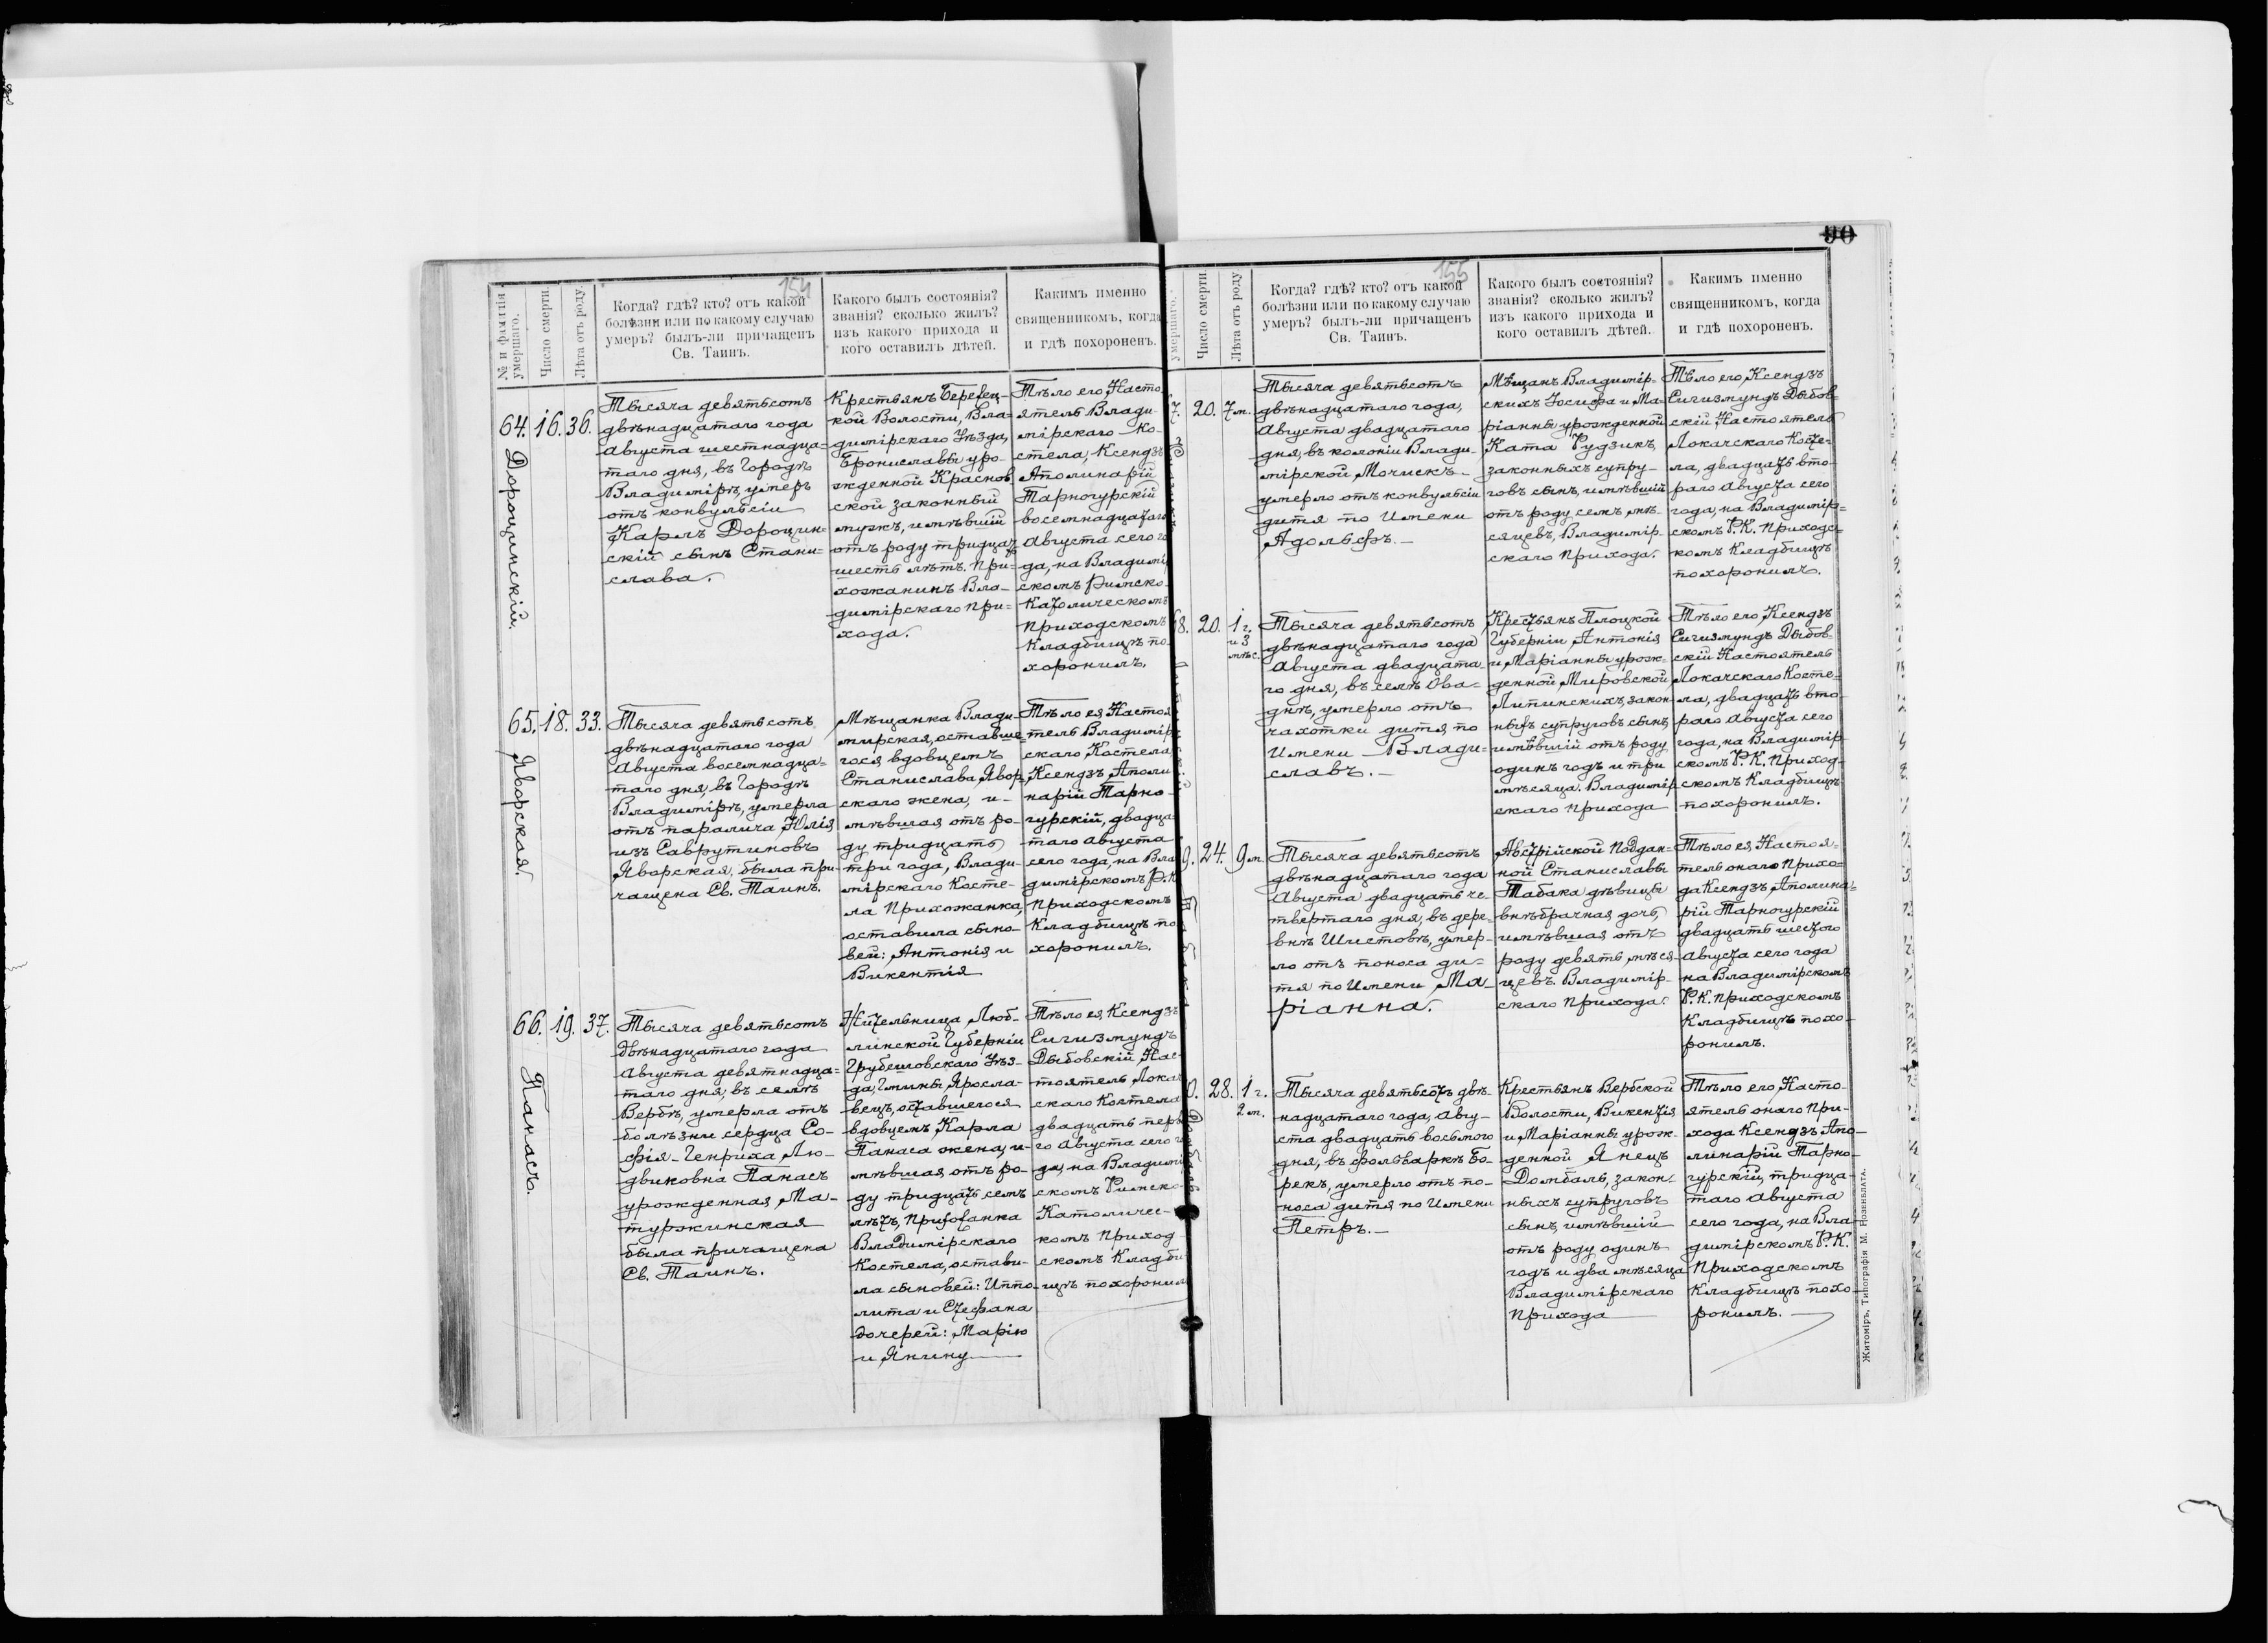 154
№ и фамилія умершаго.
Число смерти.
Лѣта отъ роду.
Когда? гдѣ? кто? отъ какой
болѣзни или по какому случаю
умеръ? былъ-ли причащенъ
Св. Таинъ.
Какого былъ состоянія?
званія? сколько жилъ?
изъ какого прихода и
кого оставилъ дѣтей.
Какимъ именно
священникомъ, когда
и гдѣ похороненъ.
64. 16. 36.
Дороцинскій.
Тысяча девятьсотъ
двѣнадцатаго года
Августа шестнадца=
таго дня, въ Городѣ
Владимірѣ, умеръ
отъ конвульсіи
Карлъ Дороцин=
скій сынъ Стани=
слава.
Крестьянъ Березец-
кой Волости, Вла-
димірскаго Уѣзда,
Брониславы уро-
жденной Краснов-
ской законный
мужъ, имѣвшій
отъ роду тридцать
шесть лѣтъ. При=
хожанинъ Вла-
димірскаго При=
хода.
Тѣло его, Насто
ятель Влади-
мірскаго Ко-
стела, Ксендзъ
Аполинарій
Тарногурскій
восемнадцатаго
Августа сего го
да, на Владимір
скомъ Римско-
Католическомъ
Приходскомъ
Кладбищѣ по-
хоронилъ.
65. 18. 33.
Яворская.
Тысяча девятьсотъ
двѣнадцатаго года
Августа восемнадца=
таго дня, въ Городѣ
Владимірѣ, умерла
отъ паралича, Юлія
изъ Саврутиновъ
Яворская, была при
чащена Св. Таинъ.
Мѣщанка Влади-
мирская, оставше=
гося вдовцемъ
Станислава Явор
скаго жена, и-
мѣвшая отъ ро-
ду тридцать
три года, Влади-
мірскаго Косте-
ла Прихожанка,
оставила сыно-
вей: Антонія и
Викентія
Тѣло ея, Настоя
тель Владимір
скаго Костела
Ксендзъ Аполи
нарій Тарно-
гурскій, двадца-
таго Августа
сего года, на Вла
димірскомъ Р. К
Приходскомъ
Кладбищѣ по
хоронилъ.
66. 19. 37.
Панасъ.
Тысяча девятьсотъ
двѣнадцатаго года
Августа девятнадца=
таго дня, въ селѣ
Вербѣ, умерла отъ
болѣзни сердца Со-
фія-Генриха Лю-
двиковна Панасъ
урожденная Ма-
туржинская
была причащена
Св. Таинъ.
Жительница Люб-
линской Губерніи
Грубешовскаго Уѣз-
да, Гмины Яросла-
вецъ, оставшегося
вдовцемъ, Карла
Панаса жена, и-
мѣвшая отъ ро-
ду тридцать семь
лѣтъ, Прихожанка
Владимірскаго
Костела, остави-
ла сыновей: Иппо-
лита и Стефана
дочерей: Марію
и Янину
Тѣло ея, Ксендзъ
Сигизмундъ
Дыбовскій, Нас-
тоятель Локач
скаго Костела
двадцать перв
го Августа сего г
да, на Владимір
скомъ Римско-
Католичес-
комъ Приход
скомъ Кладби
щѣ похоронил
90
155
умершаго.
Число смерти.
Лѣта отъ роду
Когда? гдѣ? кто? отъ какой
болѣзни или по какому случаю
умеръ? былъ-ли причащенъ
Св. Таинъ.
Какого былъ состоянія?
званія? сколько жилъ?
изъ какого прихода и
кого оставилъ дѣтей.
Какимъ именно
священникомъ, когда
и гдѣ похороненъ.
7. 20. 7 м.
Тысяча девятьсотъ
двѣнадцатаго года,
Августа двадцатаго
дня, въ колоніи Влади-
мірской Мочискъ
умерло отъ конвульсіи
дитя по Имени
Адольфъ.-
Мѣщанъ Владимір-
скихъ Іосифа и Ма-
ріанны урожденной
Ката Рудзикъ,
законныхъ супру-
говъ сынъ, имѣвшій
отъ роду, семь мѣ-
сяцевъ, Владимір-
скаго Прихода.
Тѣло его, Ксендзъ
Сигизмундъ Дыбов-
скій Настоятель
Локачскаго Косте-
ла, двадцать вто-
раго Августа сего
года, на Владимір=
скомъ Р. К. Приходс-
комъ Кладбищѣ
похоронилъ.
68. 20. 1 г. и 3 мѣс.
Тысяча девятьсотъ
двѣнадцатаго года
Августа двадцата-
го дня, въ селѣ Ова-
днѣ, умерло отъ
чахотки дитя по
Имени Влади=
славъ.-
Крестьянъ Плоцкой
Губерніи Антонія
и Маріанны урож-
денной Мировской
Липинскихъ, закон-
ныхъ супруговъ сынъ,
имѣвшій отъ роду
одинъ годъ и три
мѣсяца. Владимір
скаго Прихода
Тѣло его, Ксендзъ
Сигизмундъ Дыбов-
скій Настоятель
Локачскаго Косте=
ла, двадцать вто-
раго Августа сего
года, на Владимір-
скомъ Р. К. Приход-
скомъ Кладбищѣ
похоронилъ.
9. 24. 9 м.
Тысяча девятьсотъ
двѣнадцатаго года
Августа двадцать че-
твертаго дня, въ дере=
внѣ Шистовѣ, умер-
ло отъ поноса ди-
тя по Имени Ма-
ріанна.
Австрійской Поддан=
ной Станиславы
Табака дѣвицы
внѣбрачная дочь,
имѣвшая отъ
роду девять мѣся-
цевъ. Владимір-
скаго Прихода.
Тѣло ея, Настоя=
тель онаго Прихо=
да Ксендзъ, Аполина=
рій Тарногурскій
двадцать шестого
Августа сего года
на Владимірскомъ
Р. К. Приходскомъ
Кладбищѣ похо-
ронилъ.
0. 28. 1 г. 2 м.
Тысяча девятьсотъ двѣ-
надцатаго года, Авгу-
ста двадцать восьмого
дня, въ фольваркѣ Бо-
рекъ, умерло отъ по-
носа дитя по Имени
Петръ.-
Крестьянъ Вербской
Волости, Викентія
и Маріанны урож-
денной Янецъ
Домбаль, закон-
ныхъ супруговъ
сынъ, имѣвшій
отъ роду одинъ
годъ и два мѣсяца
Владимірскаго
Прихода
Тѣло его, Насто-
ятель онаго При-
хода Ксендзъ Апо-
линарій Тарно-
гурскій, тридца-
таго Августа
сего года, на Вла-
димірскомъ Р. К.
Приходскомъ
Кладбищѣ похо-
ронилъ.
Житоміръ, Типографія М. Розенблата.